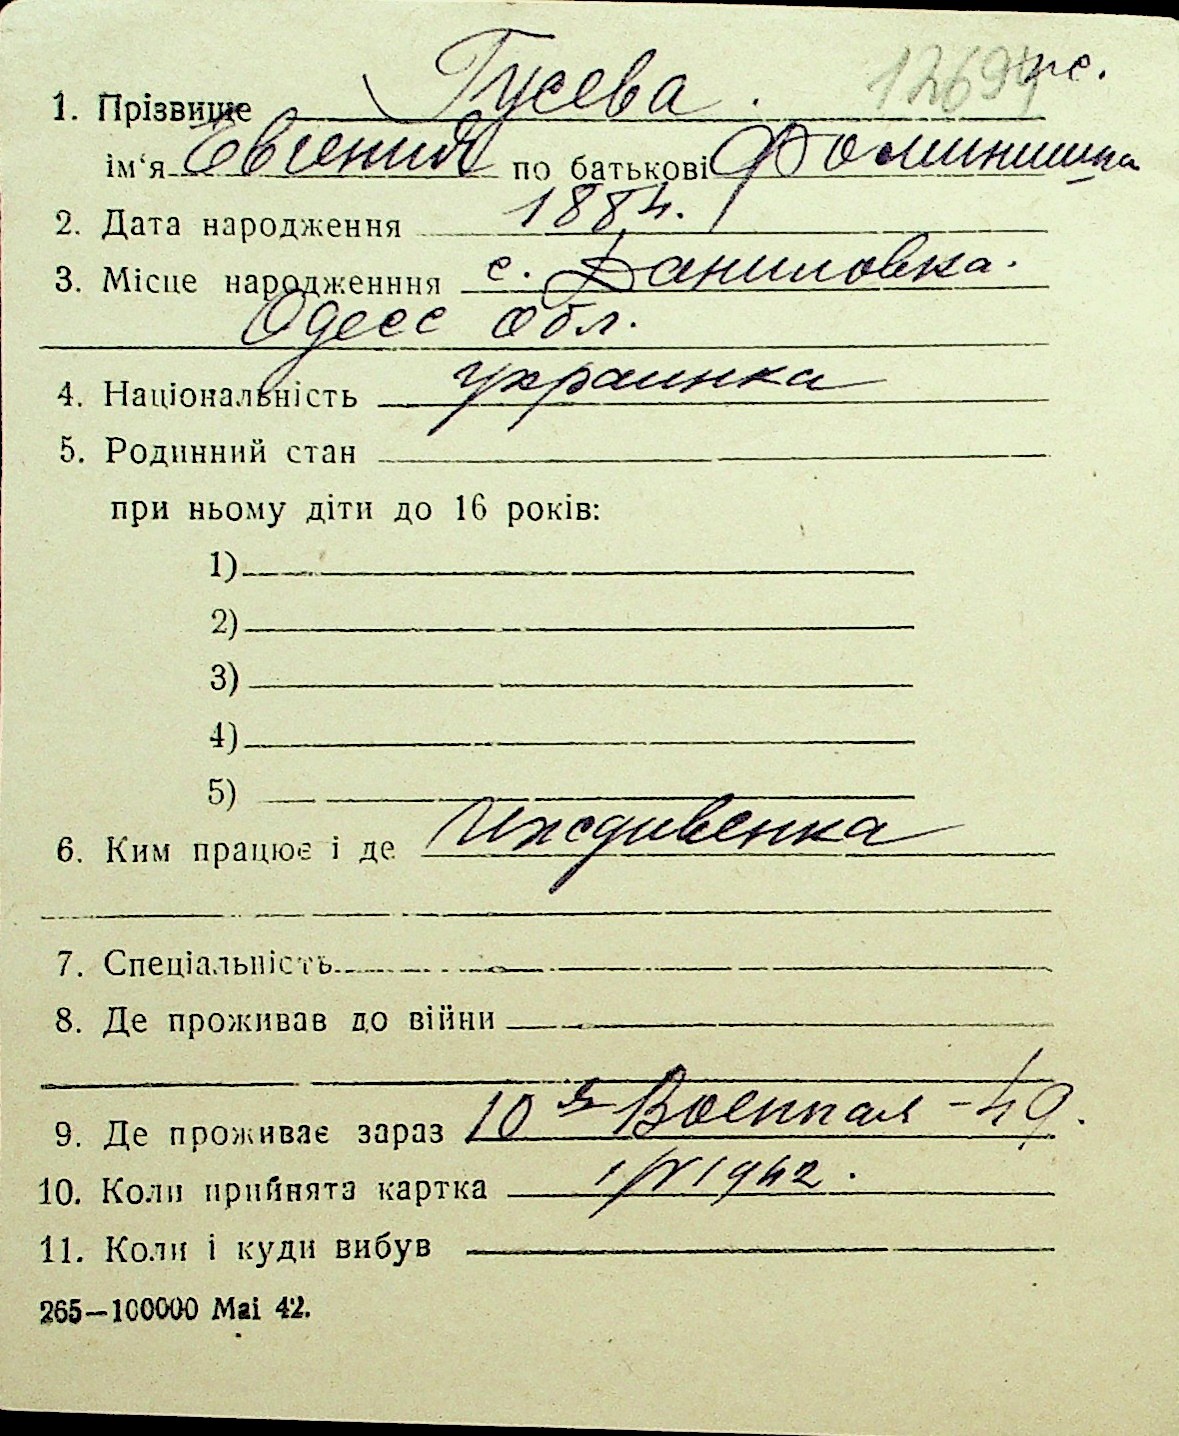 12694
1. Прізвище Гусева.
ім‘я Евгения по батькові Фоминишна
2. Дата народження 1884.
3. Місце народженння с. Даниловка.
Одесс обл.
4. Національність украинка
5. Родинний стан
при ньому діти до 16 років:
1)
2)
3)
4)
5)
6. Ким працює і де Иждивенка
7. Спеціальність
8. Де проживав до війни
9. Де проживає зараз 10я Военная - 49.
10. Коли прийнята картка 1942.
11. Коли і куди вибув
265—100000 Mai 42.